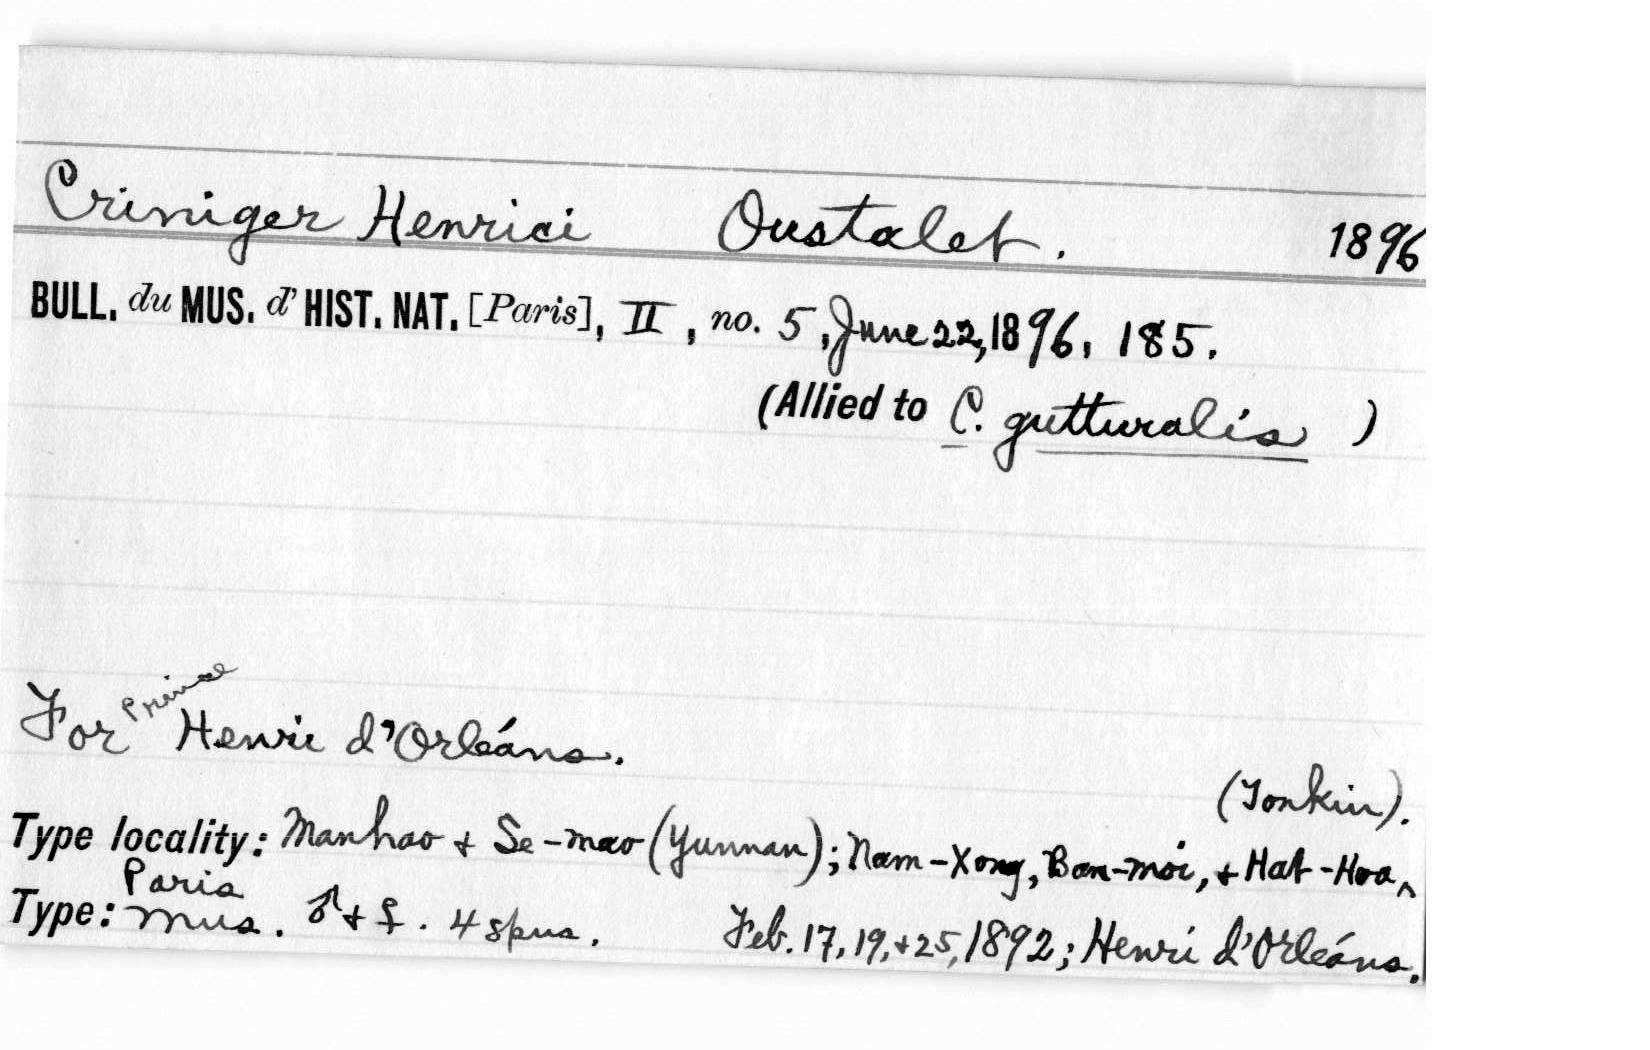 Criniger Henrici Oustalet. 1896
BULL. du MUS. d' HIST. NAT. [Paris], II, no. 5, June 22, 1896, 185.
(Allied to C. gutturalis )
For Prince Henri d'Orléans.
(Tonkin).
Type locality: Manhao + Se-mao (Yunnan); Nam-Xong, Ban-moi, + Hat-Hoa ^
Type: Paris Mus. ♂ + ♀. 4 spns. Feb. 17, 19, +25, 1892; Henri d'Orléans.